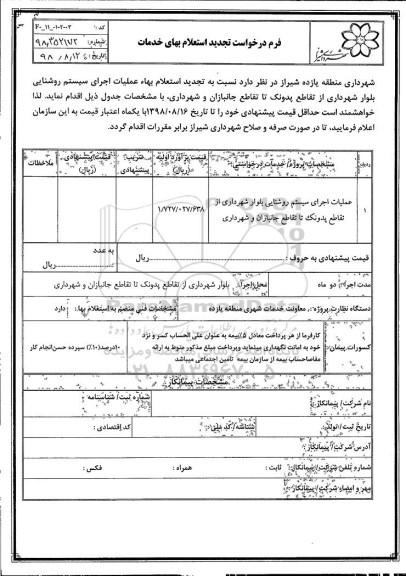 کد: ۴۰_۱۱_۰۱-۰۲-۰۰۲
شماره: ۹۸,۳۵۲۱۷۲
تاریخ: ۹۸ / ۸ /
فرم درخواست تجدید استعلام بهای خدمات
شهرداری منطقه یازده شیراز در نظر دارد نسبت به تجدید استعلام بهاء عملیات اجرای سیستم روشنایی
بلوار شهرداری از تقاطع پدونک تا تقاطع جانبازان و شهرداری، با مشخصات جدول ذیل اقدام نماید. لذا
خواهشمند است حداقل قیمت پیشنهادی خود را تا تاریخ ۱۳۹۸/۰۸/۱۶ با یکماه اعتبار قیمت به این سازمان
اعلام فرمایید، تا در صورت صرفه و صلاح شهرداری شیراز برابر مقررات اقدام گردد.
ردیف مشخصات پروژه/ خدمات درخواستی: قیمت برآورد اولیه (ریال) ضریب پیشنهادی قیمت پیشنهادی (ریال) ملاحظات
۱ عملیات اجرای سیستم روشنایی بلوار شهرداری از ۱/۷۲۷/۰۲۷/۶۳۸
تقاطع پدونک تا تقاطع جانبازان و شهرداری
قیمت پیشنهادی به حروف : ریال به عدد ریال
مدت اجرا: دو ماه محل اجرا: بلوار شهرداری از تقاطع پدونک تا تقاطع جانبازان و شهرداری
دستگاه نظارت پروژه: معاونت خدمات شهری منطقه یازده مشخصات فنی منضم به استعلام بها: دارد
کسورات پیمان: کارفرما از هر پرداخت معادل ۵٪ بیمه به عنوان علی الحساب کسر و نزد
خود به امانت نگهداری مینماید و پرداخت مبلغ مذکور منوط به ارائه ۱۰درصد(۱۰٪) سپرده حسن انجام کار
مفاصاحساب بیمه از سازمان بیمه تامین اجتماعی میباشد
مشخصات پیمانکار
نام شرکت/ پیمانکار: شماره ثبت/ شناسنامه :
تاریخ ثبت/ تولد: شناسه/ کد ملی: کد اقتصادی :
آدرس شرکت/ پیمانکار:
شماره تلفن شرکت/ پیمانکار: ثابت : همراه : فکس :
مهر و امضاء شرکت/ پیمانکار: